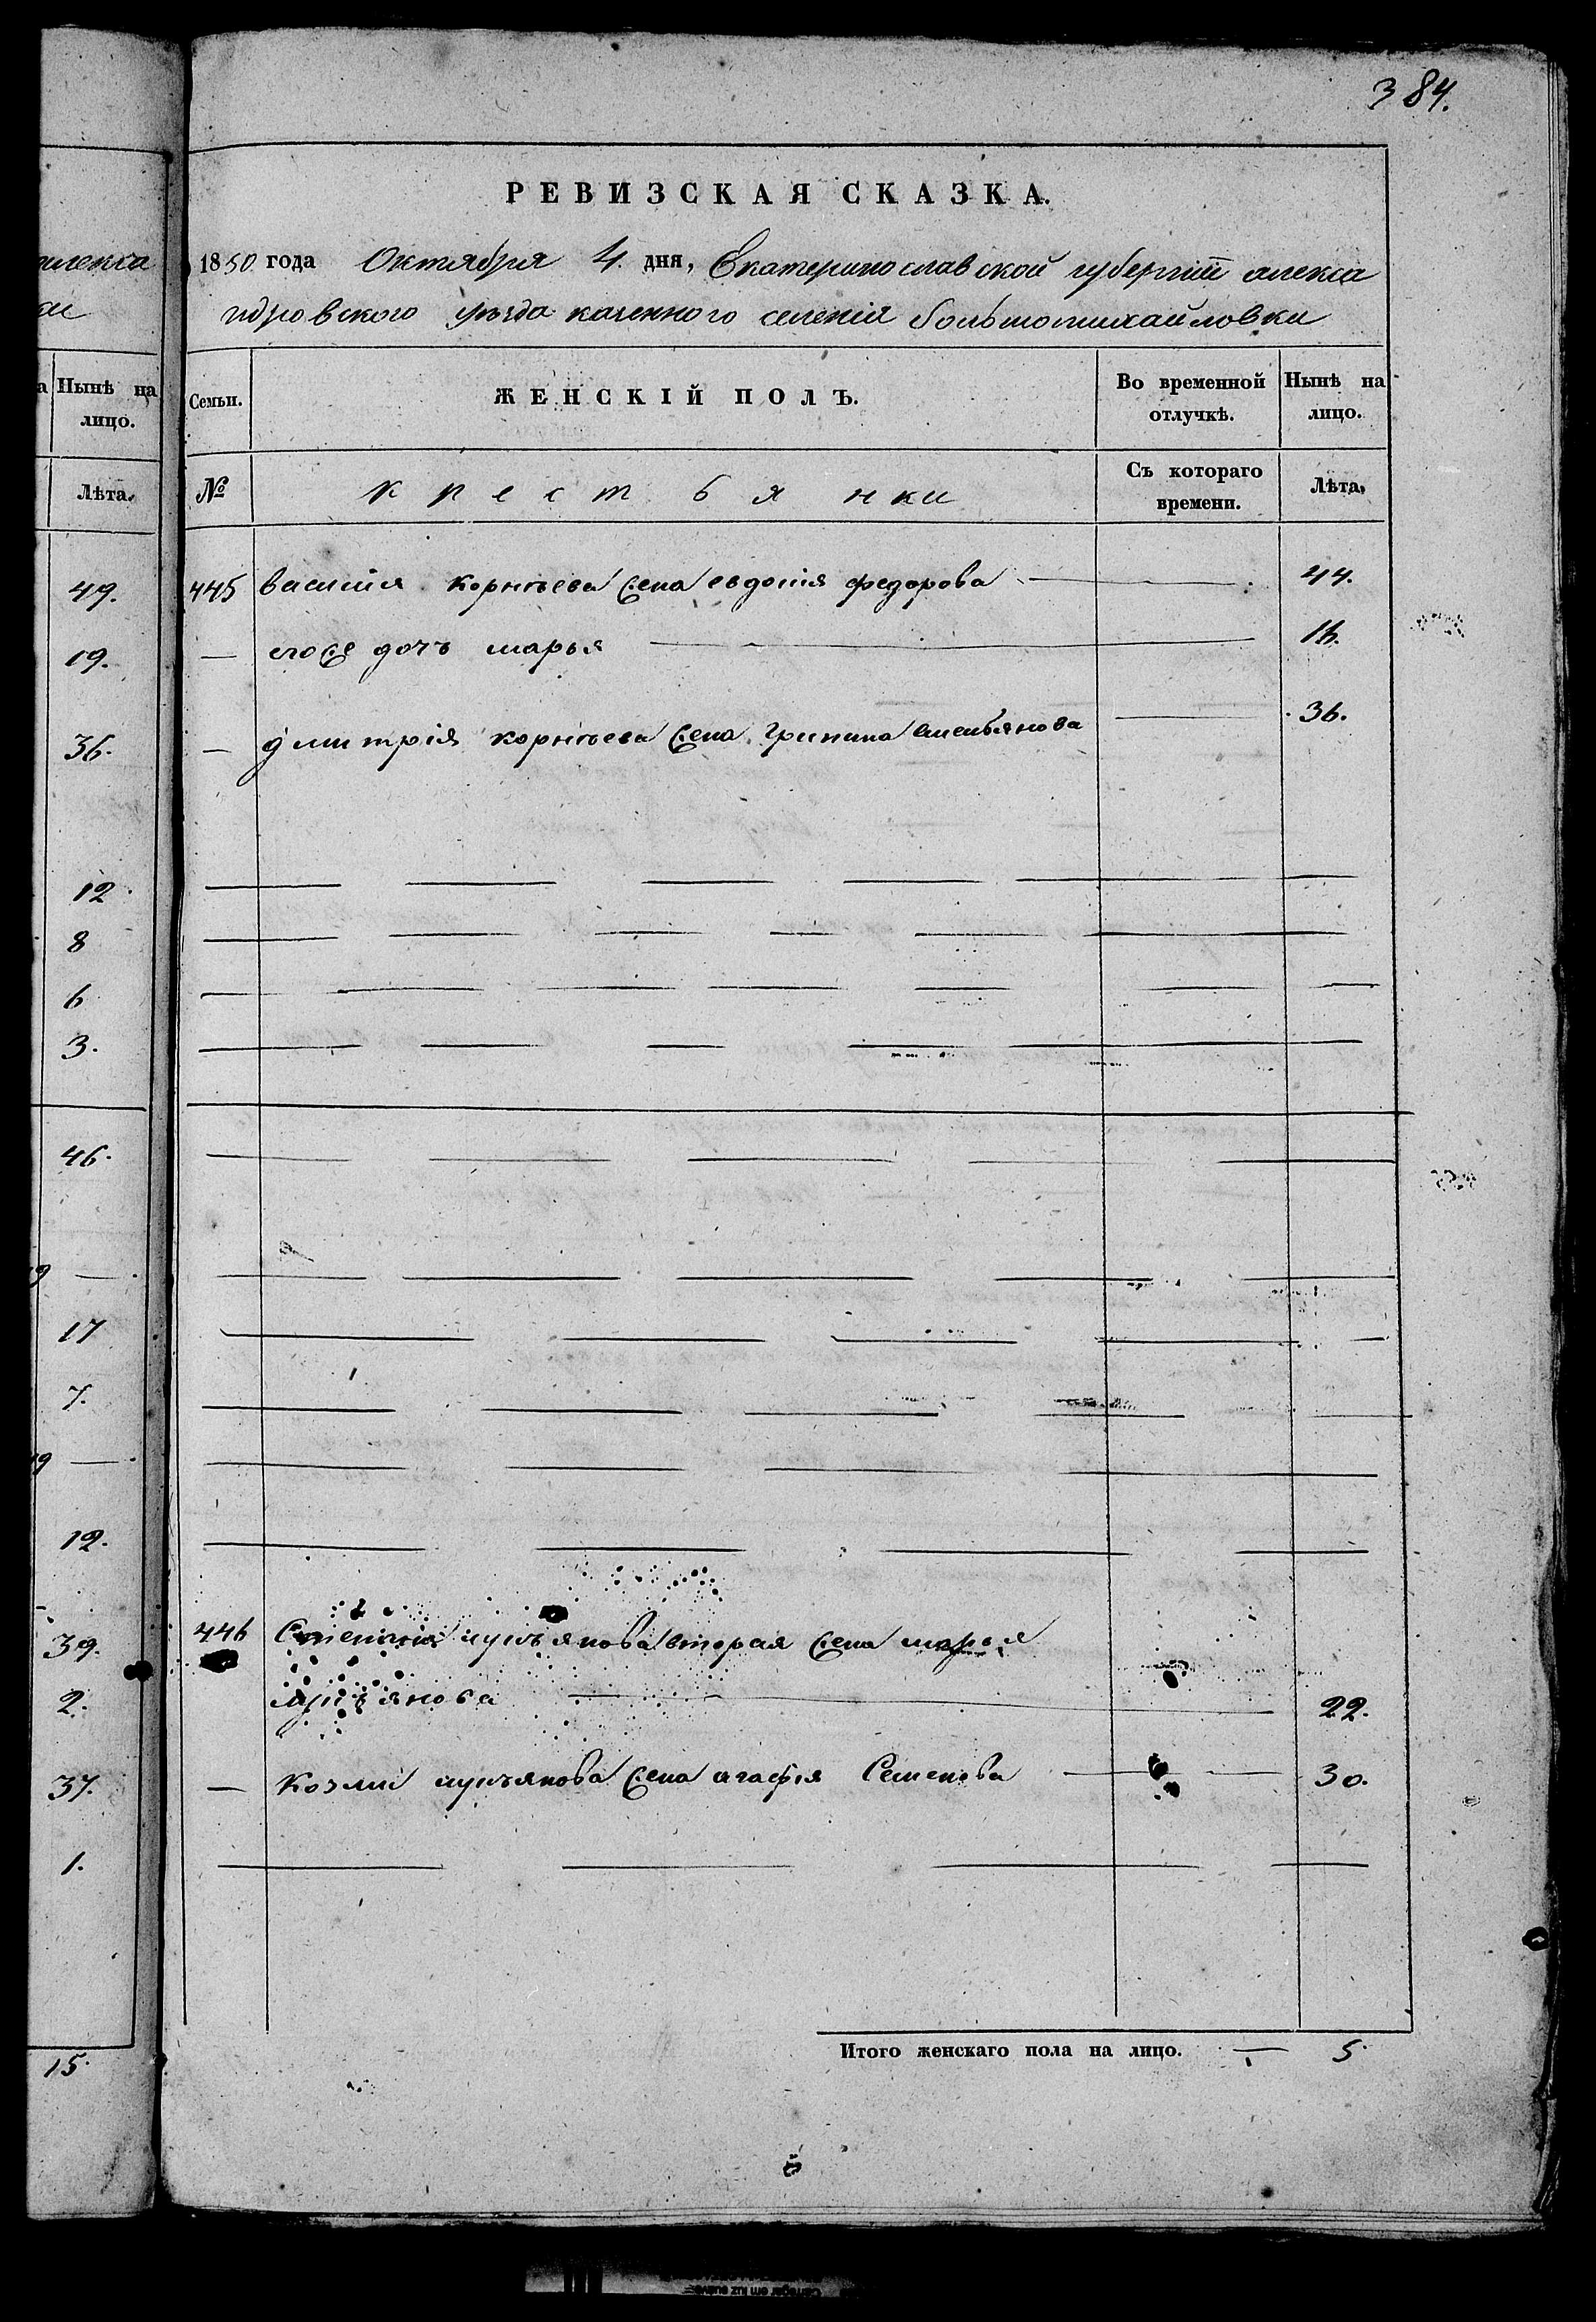 384.
РЕВИЗСКАЯ СКАЗКА.
1850 года Октября 4. дня, Екатеринославской губерніи алекса
ндровского уѣзда казенного селенія большомихайловки
Нынѣ на лицо.
Семьи.
ЖЕНСКІЙ ПОЛЪ.
Во временной отлучкѣ.
Нынѣ на лицо.
Лѣта.
№
крестьянки
Съ котораго времени.
Лѣта.
49.
445 василия корнѣева жена евдокия федорова 44.
19.
— его же дочь марья 16.
36.
— дмитрія корнѣева жена емельянова 36.
12
8
6
3.
46.
17
7.
12.
39.
446 лукъянова вторая жена марья
2.
лукъянова 22.
37.
— козми лукъянова жена агафия Семенова 30.
1.
Итого женскаго пола на лицо. — 5.
15.